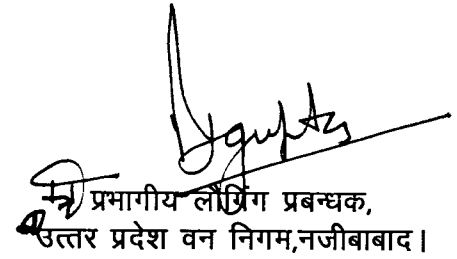 Dgupta
प्रभागीय लौगिंग प्रबन्धक,
उत्तर प्रदेश वन निगम,नजीबाबाद।